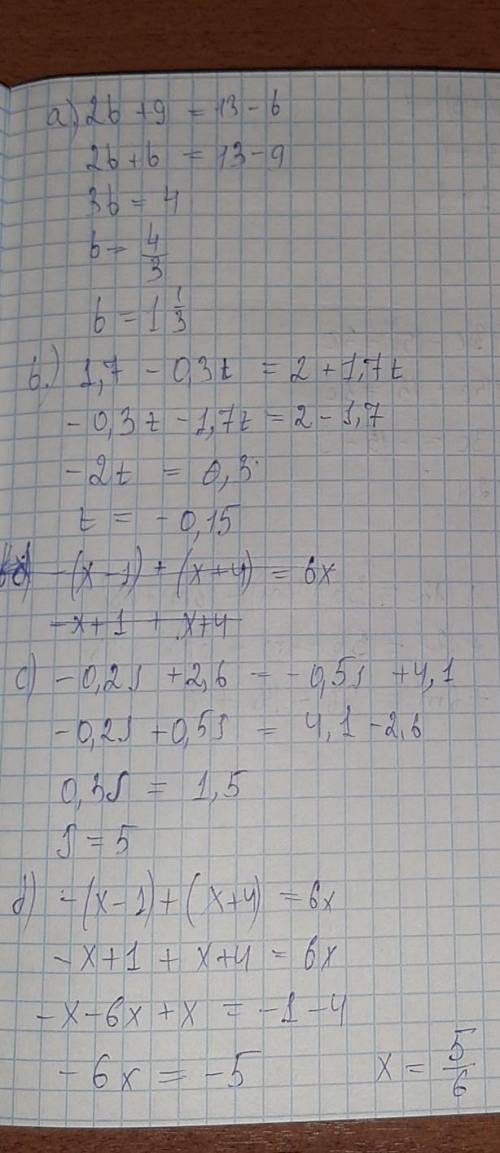 a) 2b + 9 = 13 - b
2b + b = 13 - 9
3b = 4
b = 4/3
b = 1 1/3
b.) 1,7 - 0,3t = 2 + 1,7t
- 0,3t - 1,7t = 2 - 1,7
- 2t = 0,3
t = - 0,15
-(x-1) + (x+4) = 6x
-x+1 + x+4
c) - 0,2s + 2,6 = - 0,5s + 4,1
- 0,2s + 0,5s = 4,1 - 2,6
0,3s = 1,5
s = 5
d) -(x-1) + (x+4) = 6x
-x+1 + x+4 = 6x
-x-6x+x = -1-4
-6x = -5 x = 5/6